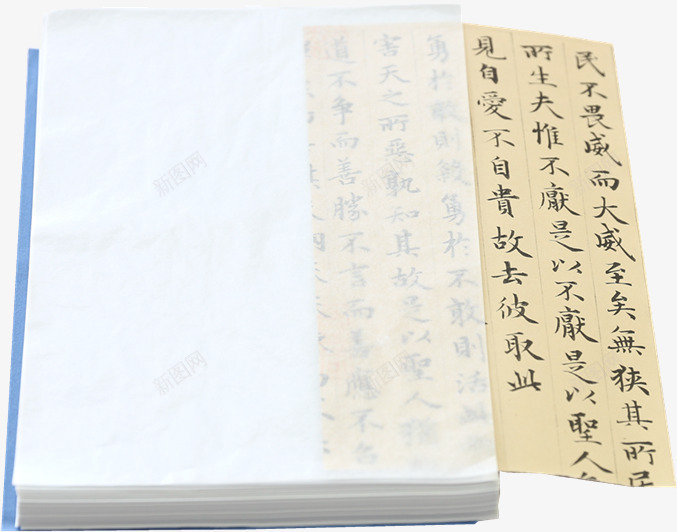 民不畏威而大威至矣無狹其所居
所生夫惟不厭是以不厭是以聖人
見自愛不自貴故去彼取此
勇於敢則殺勇於不敢則活此
害天之所惡孰知其故是以聖人猶
道不爭而善勝不言而善應不召
新图网
新图网
新图网
新图网